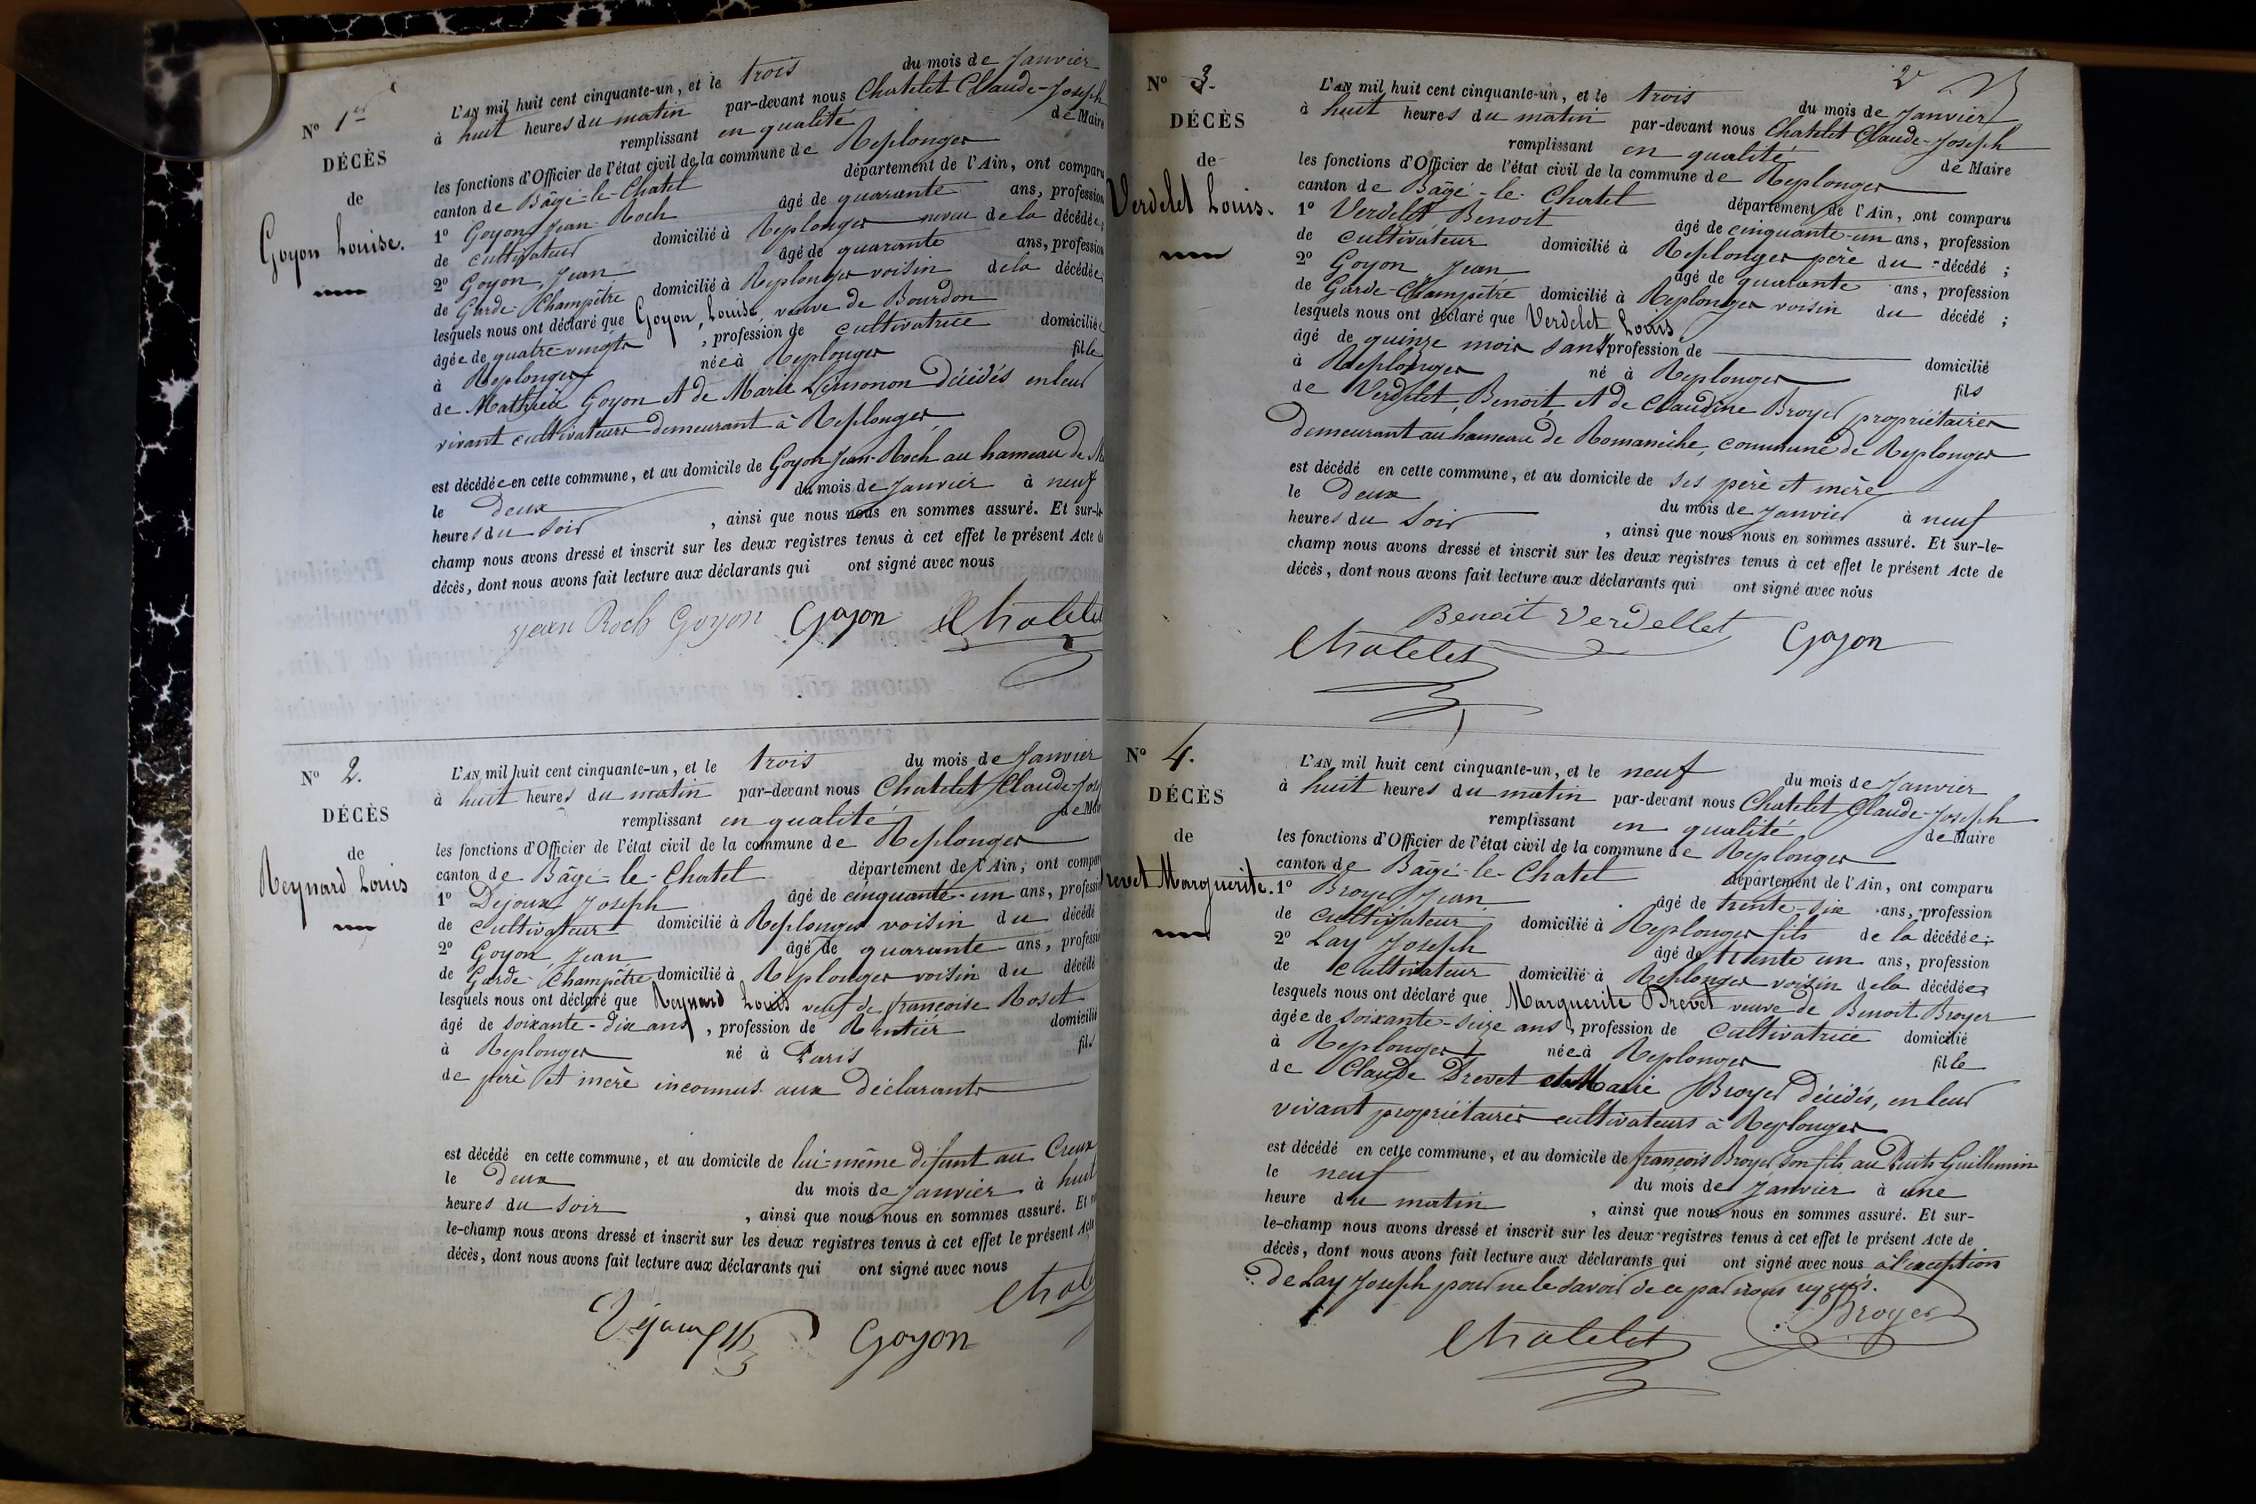 Nº 1er
DÉCÈS
de
Goyon Louise.
L'AN mil huit cent cinquante-un, et le trois du mois de Janvier
à huit heures du matin par-devant nous Chatelet Claude-Joseph
remplissant en qualité de Maire
les fonctions d'Officier de l'état civil de la commune de Replonges
canton de Bâgé-le-Chatel département de l'Ain, ont comparu
1º Goyon Jean-Roch âgé de quarante ans, profession
de cultivateur domicilié à Replonges neveu de la décédée;
2º Goyon, Jean âgé de quarante ans, profession
de Garde-Champêtre domicilié à Replonges voisin de la décédée
lesquels nous ont déclaré que Goyon, Louise, veuve de Bourdon
âgée de quatre-vingts, profession de cultivatrice domiciliée
à Replonges née à Replonges fille
de Mathieu Goyon et de Marie décédés en leur
vivant cultivateurs demeurant à Replonges
est décédée en cette commune, et au domicile de Goyon Jean-Roch au hameau de
le Deux du mois de Janvier à neuf
heures du soir, ainsi que nous nous en sommes assuré. Et sur-le-
champ nous avons dressé et inscrit sur les deux registres tenus à cet effet le présent Acte de
décès, dont nous avons fait lecture aux déclarants qui ont signé avec nous
Jean Roch Goyon Goyon Chatelet
Nº 2.
DÉCÈS
de
Reynard Louis
L'AN mil huit cent cinquante-un, et le trois du mois de Janvier
à huit heures du matin par-devant nous Chatelet Claude-Jos
remplissant en qualité de Mai
les fonctions d'Officier de l'état civil de la commune de Replonges
canton de Bâgé-le-Chatel département de l'Ain, ont compar
1º Dejoux Joseph âgé de cinquante-un ans, professi
de cultivateur domicilié à Replonges voisin du décédé
2º Goyon, Jean âgé de quarante ans, professi
de Garde-Champêtre domicilié à Replonges voisin du décédé
lesquels nous ont déclaré que Reynard Louis veuf de françoise Roset
âgé de soixante-dix ans, profession de Rentier domicilié
à Replonges né à Paris fils
de père et mère inconnus aux déclarants
est décédé en cette commune, et au domicile de lui-même défunt au Creux
le Deux du mois de Janvier à huit
heures du soir, ainsi que nous nous en sommes assuré. Et
le-champ nous avons dressé et inscrit sur les deux registres tenus à cet effet le présent Acte
décès, dont nous avons fait lecture aux déclarants qui ont signé avec nous
Goyon
Nº 3.
DÉCÈS
de
Verdelet Louis.
2
L'AN mil huit cent cinquante-un, et le trois du mois de Janvier
à huit heures du matin par-devant nous Chatelet Claude-Joseph
remplissant en qualité de Maire
les fonctions d'Officier de l'état civil de la commune de Replonges
canton de Bâgé-le-Chatel département de l'Ain, ont comparu
1º Verdelet Benoit âgé de cinquante-un ans, profession
de cultivateur domicilié à Replonges père du décédé;
2º Goyon Jean âgé de quarante ans, profession
de Garde-Champêtre domicilié à Replonges voisin du décédé;
lesquels nous ont déclaré que Verdelet Louis
âgé de quinze mois sans profession de domicilié
à Replonges né à Replonges fils
de Verdelet, Benoit, et de Claudine Broyer propriétaires
Demeurant au hameau de Romanèche, commune de Replonges
est décédé en cette commune, et au domicile de ses père et mère
le Deux du mois de Janvier à neuf
heures du soir, ainsi que nous nous en sommes assuré. Et sur-le-
champ nous avons dressé et inscrit sur les deux registres tenus à cet effet le présent Acte de
décès, dont nous avons fait lecture aux déclarants qui ont signé avec nous
Benoit Verdellet Goyon
Chatelet
Nº 4.
DÉCÈS
de
revet Marguerite.
L'AN mil huit cent cinquante-un, et le neuf du mois de Janvier
à huit heures du matin par-devant nous Chatelet Claude-Joseph
remplissant en qualité de Maire
les fonctions d'Officier de l'état civil de la commune de Replonges
canton de Bâgé-le-Chatel département de l'Ain, ont comparu
1º Broyer Jean âgé de trente-six ans, profession
de cultivateur domicilié à Replonges fils de la décédée;
2º Lay Joseph âgé de trente un ans, profession
de cultivateur domicilié à Replonges voisin de la décédée;
lesquels nous ont déclaré que Marguerite Drevet veuve de Benoit Broyer
âgée de soixante-seize ans, profession de cultivatrice domicilié
à Replonges née à Replonges fille
de Claude Drevet et Marie Broyer décédés, en leur
vivant propriétaires cultivateurs à Replonges
est décédé en cette commune, et au domicile de françois Broyer son fils au Puits Guillemin
le neuf du mois de Janvier à une
heure du matin, ainsi que nous nous en sommes assuré. Et sur-
le-champ nous avons dressé et inscrit sur les deux registres tenus à cet effet le présent Acte de
décès, dont nous avons fait lecture aux déclarants qui ont signé avec nous à l'exception
de Lay Joseph pour ne le savoir de ce par nous requis.
Broyer
Chatelet